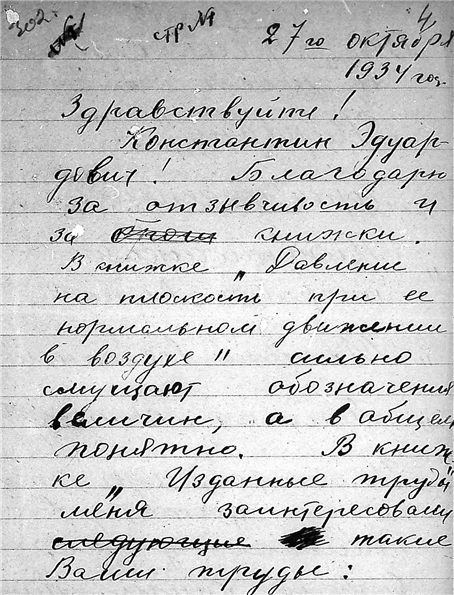 стр №1
4
27го октября
1934 год.
Здравствуйте!
Константин Эдуар-
дович! Благодарю
за отзывчивость и
за книжки.
В книжке „Давление
на плоскость при ее
нормальном движении
в воздухе" сильно
смущают обозначения
величин, а в общем
понятно. В книж-
ке „Изданные труды"
меня заинтересовали
следующие такие
Ваши труды: